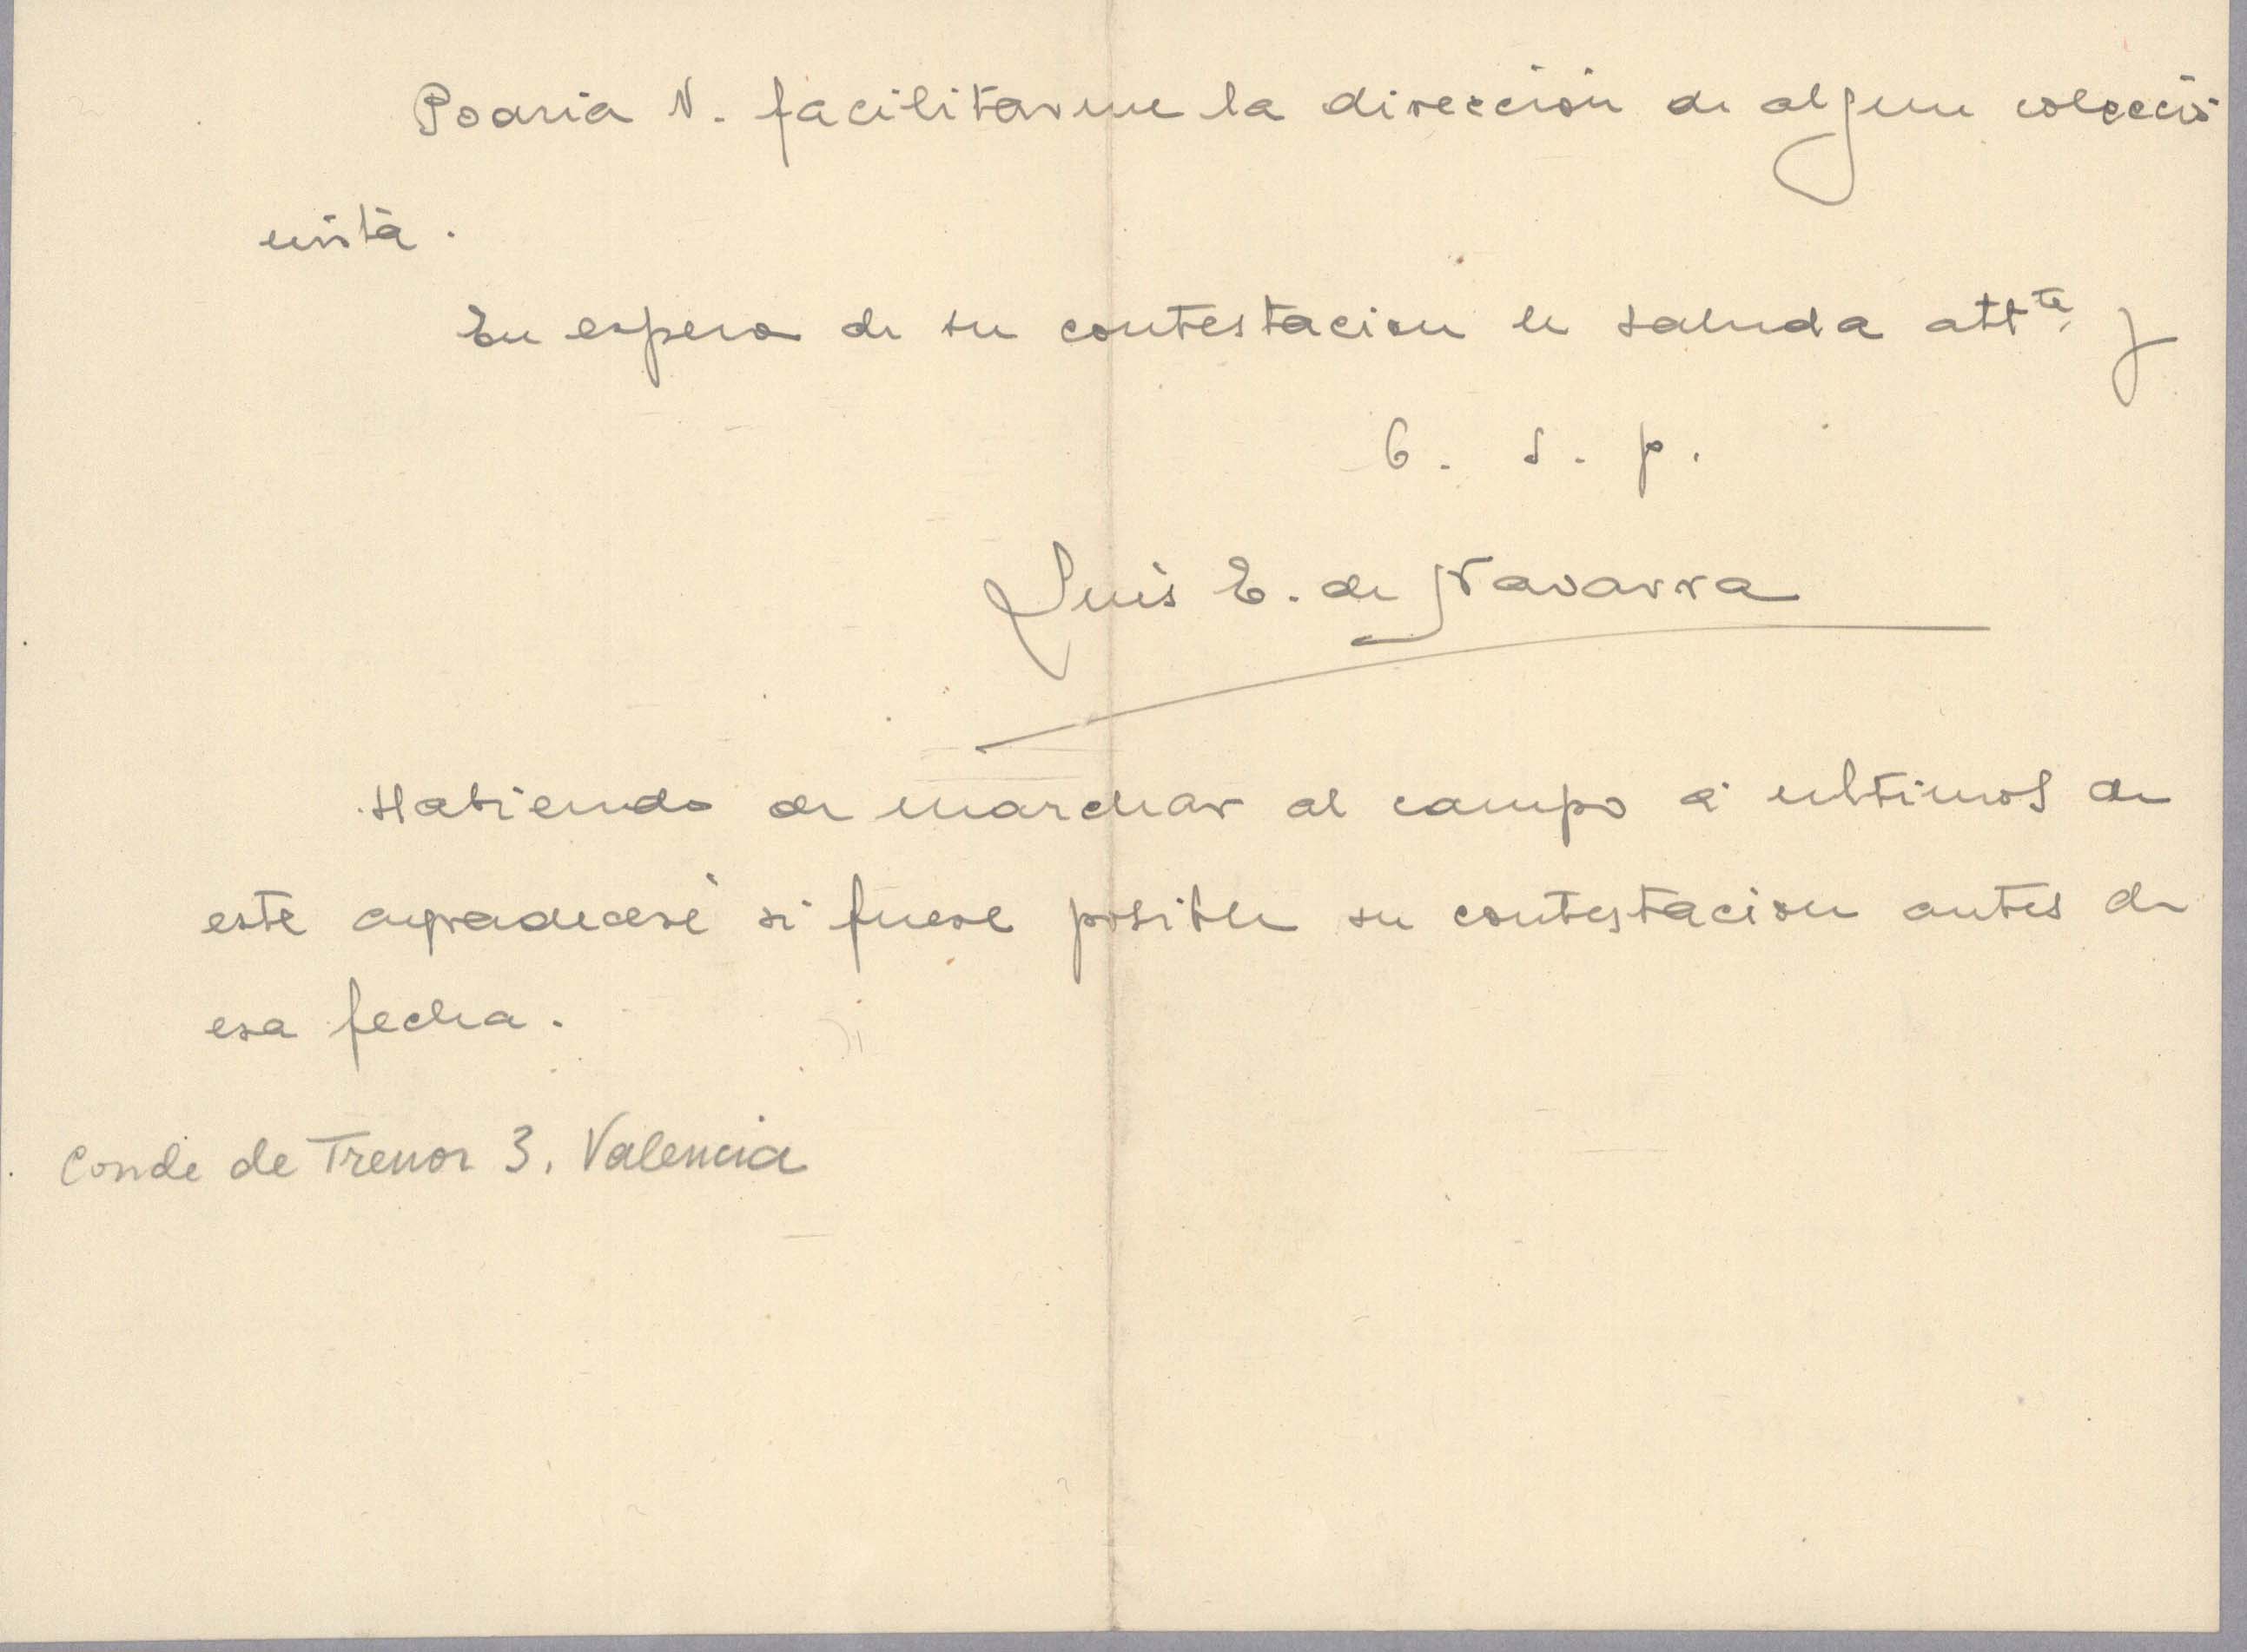 Podria V. facilitarme la dirección de algun coleccio
nista.
En espera de su contestacion le saluda attte. y
b. s. p.
Luis E. de Navarra
Habiendo de marchar al campo á ultimos de
este agradeceré si fuese posible su contestacion antes de
esa fecha.
Conde de Trenor 3, Valencia